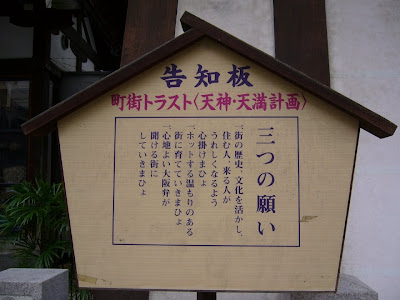 告知板
町街トラスト〈天神・天満計画〉
三つの願い
一、街の歴史、文化を活かし、
住む人、来る人が
うれしくなるよう
心掛けまひょ
一、ホットする温もりのある
街に育てていきまひょ
一、心地よい大阪弁が
聞ける街に
していきまひょ